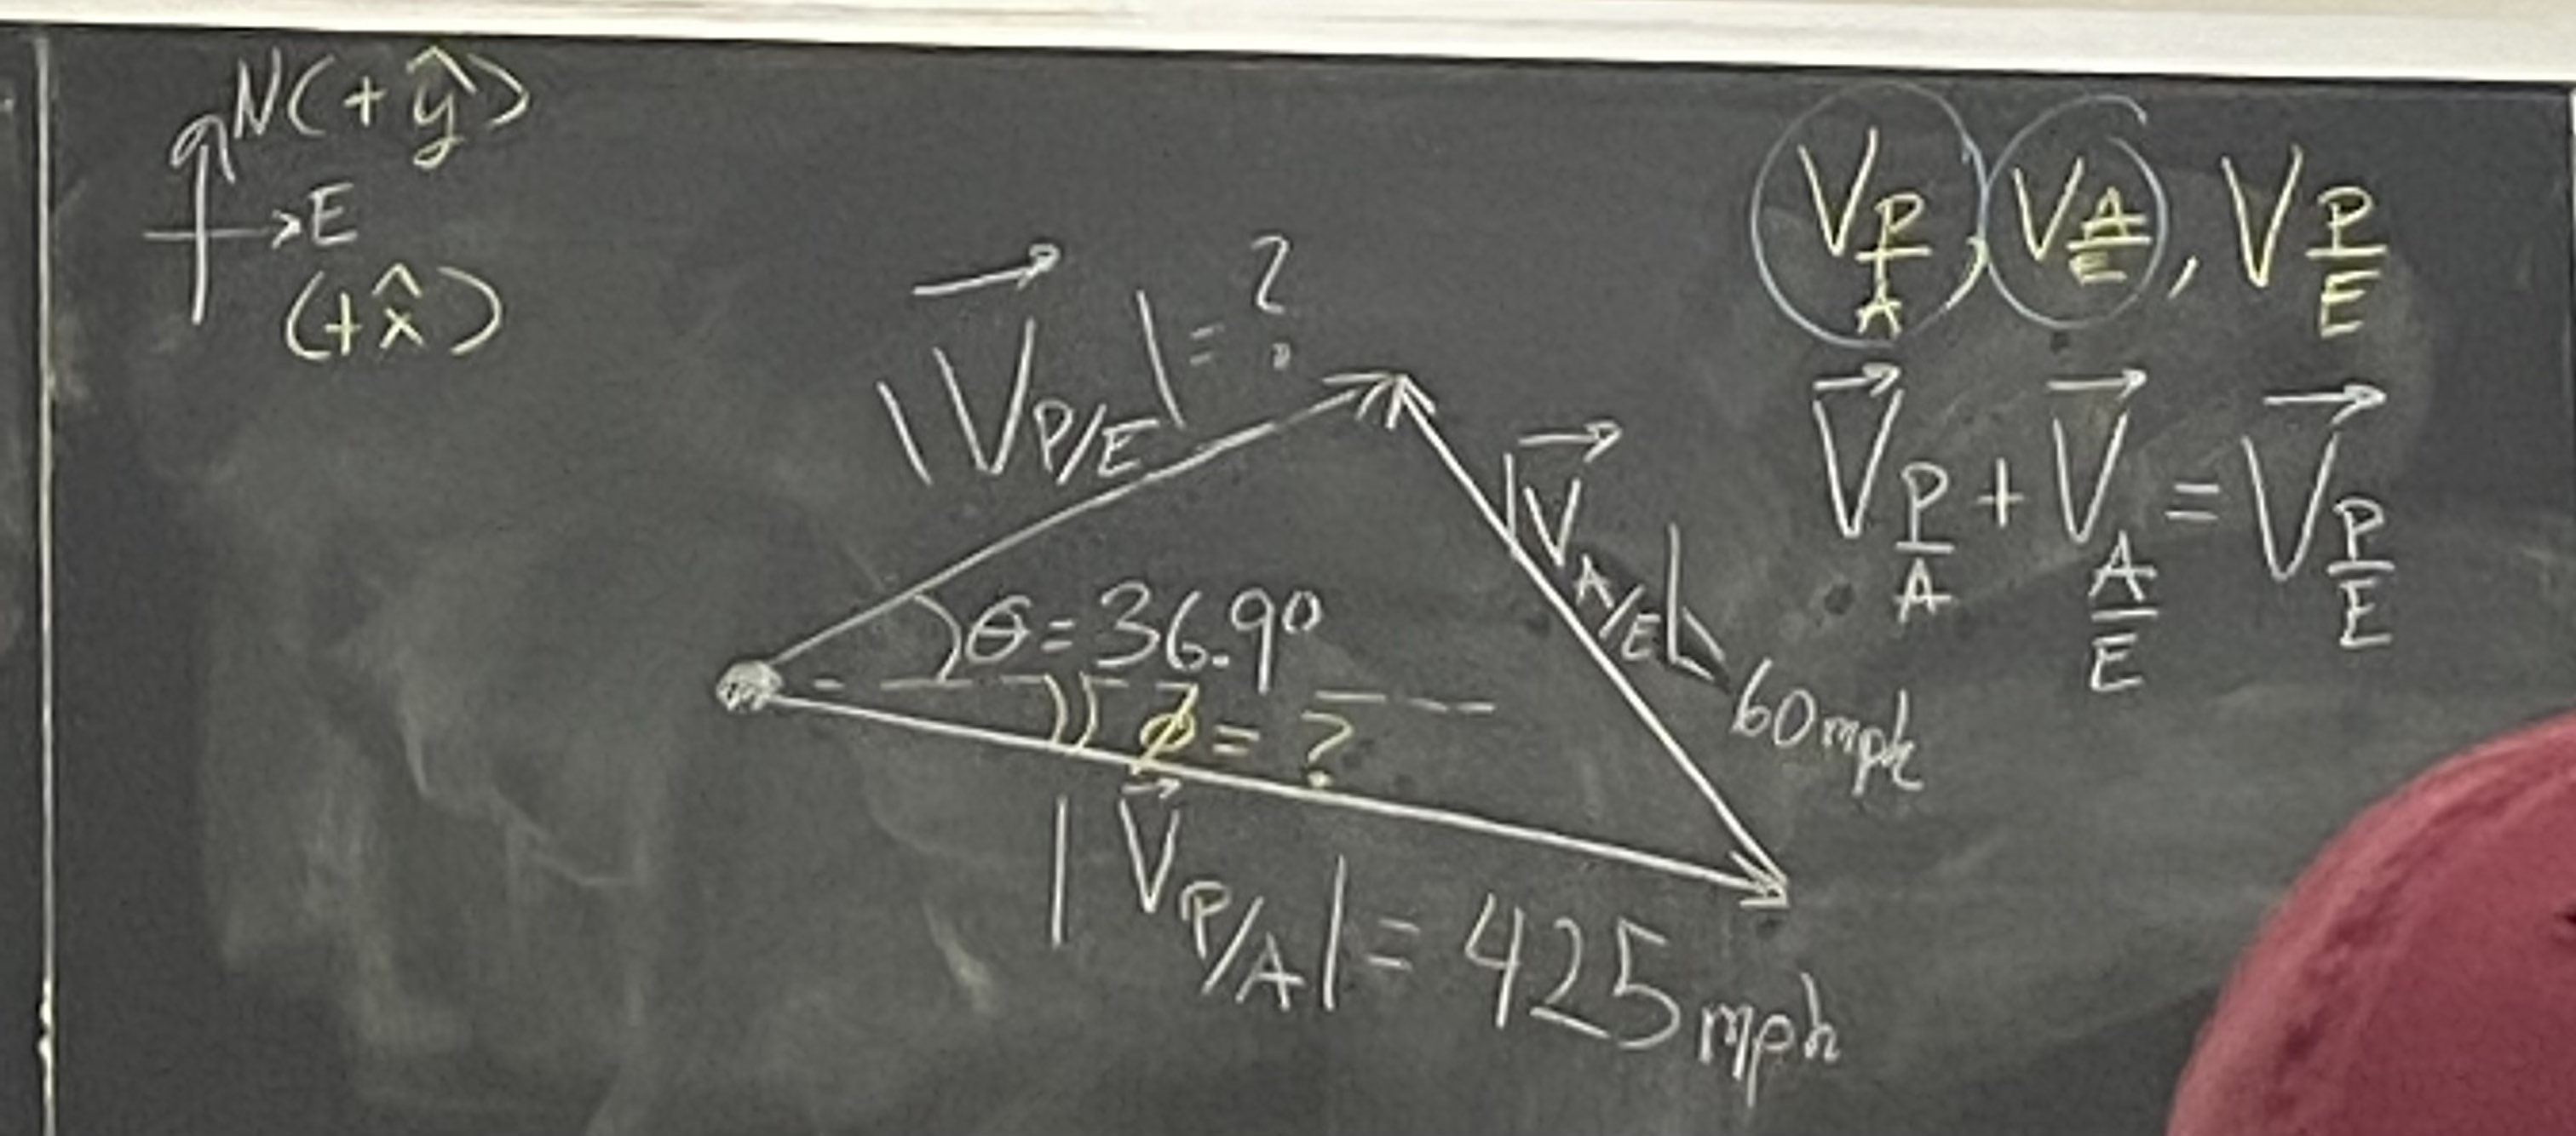 N(+ŷ)
E
(+x̂)
|V⃗P/E| = ?
θ = 36.9°
ϕ = ?
|V⃗P/A| = 425mph
|V⃗A/E|
60mph
VP/A, VA/E, VP/E
V⃗P/A + V⃗A/E = V⃗P/E